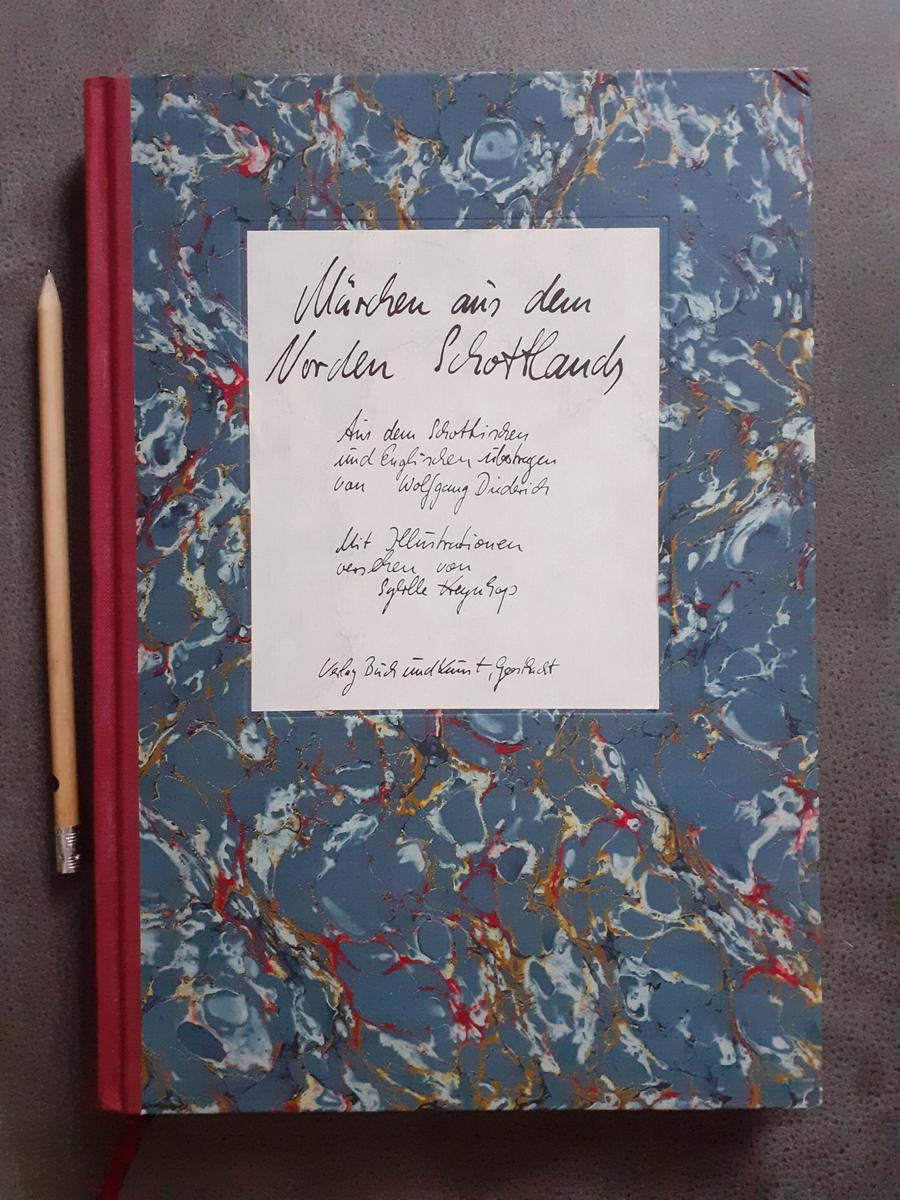 Märchen aus dem
Norden Schottlands
Aus dem Schottischen
und Englischen übertragen
von Wolfgang Diederich
Mit Illustrationen
versehen von
Sybille
Verlag Buch und Kunst, Geesthacht